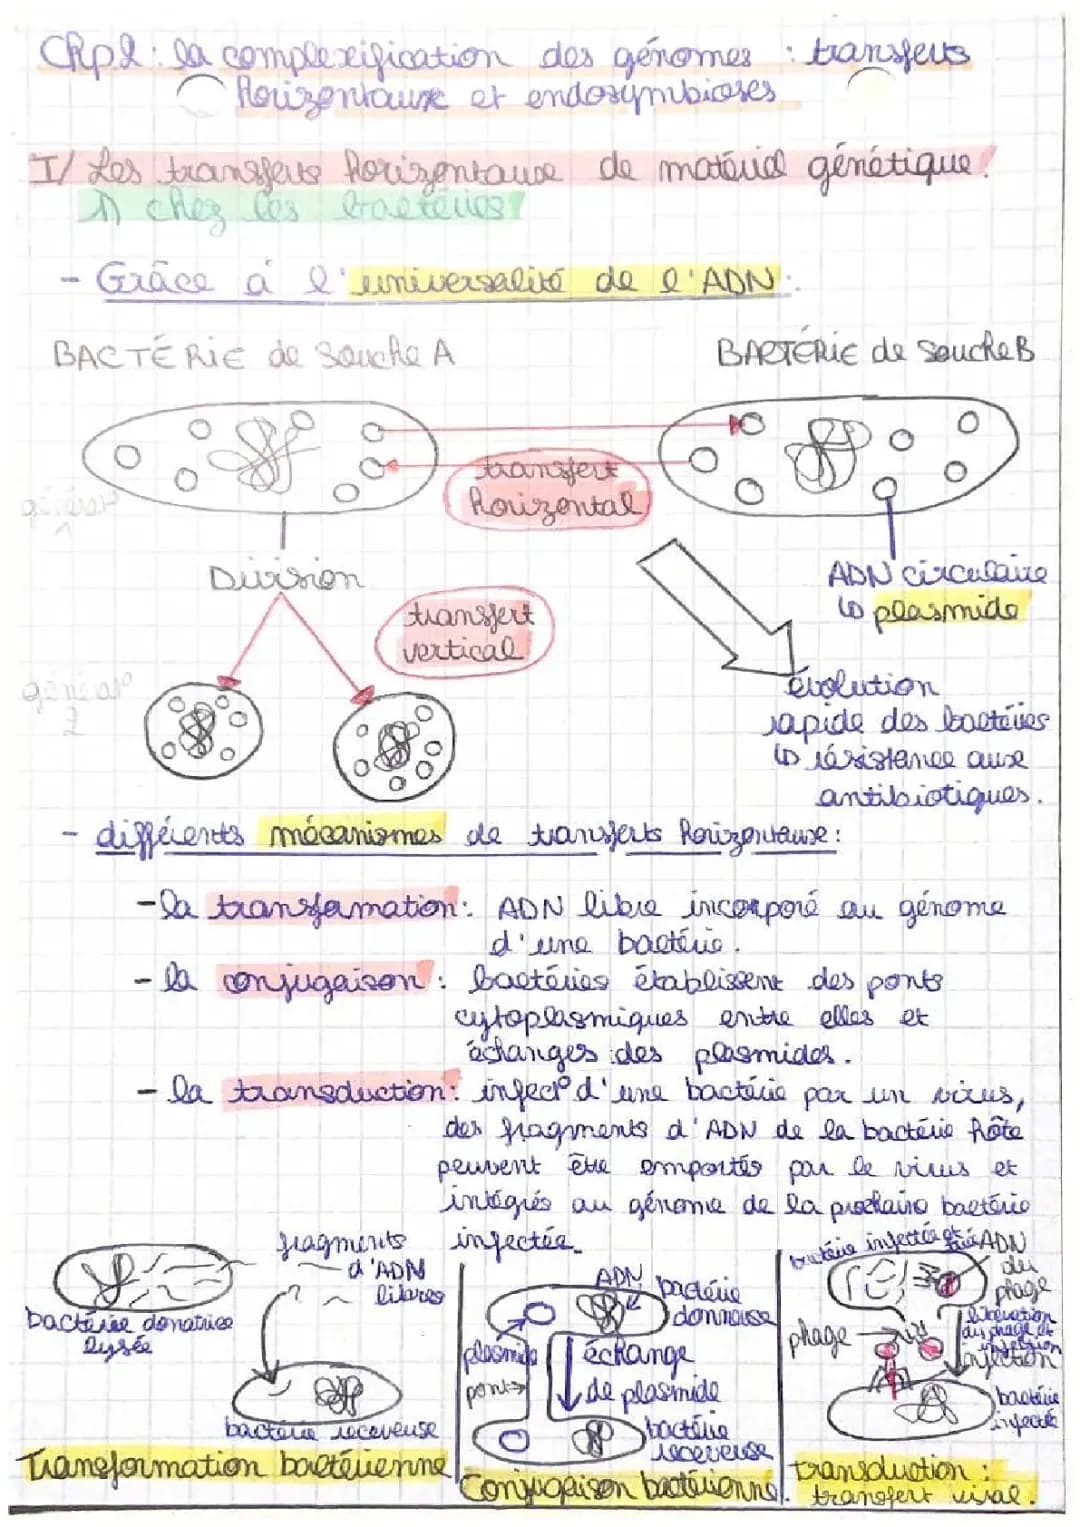 Chp2 : la complexification des génomes : transferts
horizontaux et endosymbioses
I/ Les transferts horizontaux de matériel génétique
1) chez les bactéries
- Grâce à l'universalité de l'ADN :
BACTÉRIE de souche A
BACTÉRIE de souche B
transfert
horizontal
Division
transfert
vertical
ADN circulaire
↳ plasmide
évolution
rapide des bactéries
↳ résistance aux
antibiotiques.
- différents mécanismes de transferts horizontaux :
- la transformation : ADN libre incorporé au génome
d'une bactérie.
- la conjugaison : bactéries établissent des ponts
cytoplasmiques entre elles et
échanges des plasmides.
- la transduction : infect° d'une bactérie par un virus,
des fragments d'ADN de la bactérie hôte
peuvent être emportés par le virus et
intégrés au génome de la prochaine bactérie
infectée.
fragments
d'ADN
libres
bactérie donatrice
lysée
bactérie receveuse
Transformation bactérienne
ADN
bactérie
donneuse
plasmide
ponts
échange
de plasmide
bactérie
receveuse
Conjugaison bactérienne.
bactérie infectée
ADN
du
phage
phage
libération
du phage et
injection
bactérie
infectée
transduction :
transfert viral.